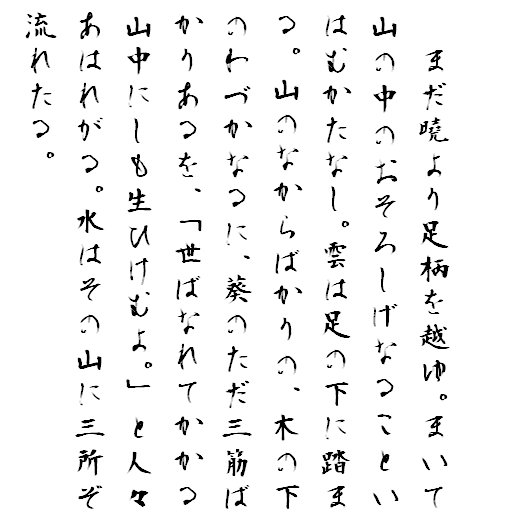 まだ暁より足柄を越ゆ。まいて
山の中のおそろしげなることい
はむかたなし。雲は足の下に踏ま
る。山のなからばかりの、木の下
のわづかなるに、葵のただ三筋ば
かりあるを、「世ばなれてかかる
山中にしも生ひけむよ。」と人々
あはれがる。水はその山に三所ぞ
流れたる。